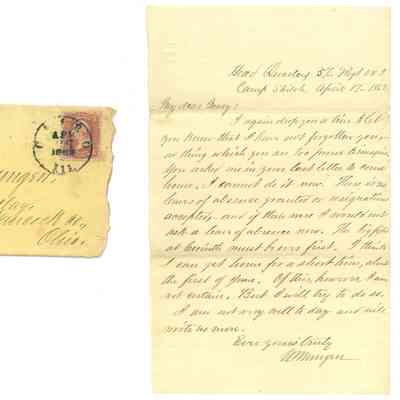 CAIRO
APR
1862
ILL.
Mungen,
Hancock
Ohio.
Head Quarters 57 Regt O V I
Camp Shiloh, April 17, 1862
My dear
I again drop you a line to let
you know that I have not forgotten you
a thing which you are too prone to imagine
You asked me in your last letter to come
home. I cannot do it now. There is no
leave of absence granted or resignation
accepted and if there were I would not
ask a leave of absence now. The fight
at Corinth must be over first. I think
I can get home for a short time, about
the first of June. Of this, however I am
not certain. But I will try to do so.
I am not very well to day and will
write no more.
Ever yours truly
W Mungen